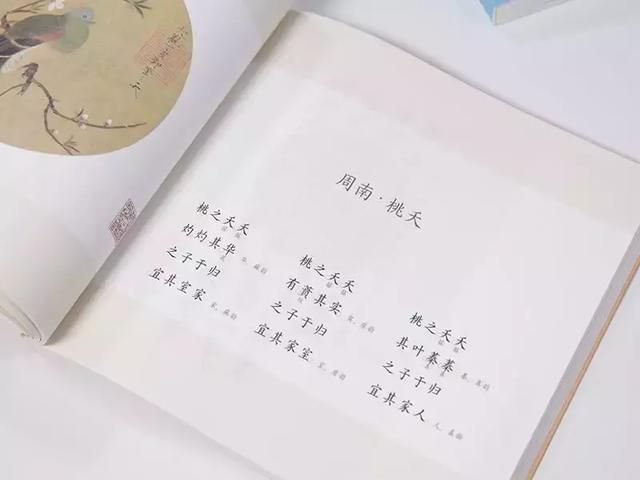 周南·桃夭
桃之夭夭
灼灼其华
之子于归
宜其室家
桃之夭夭
有蕡其实
之子于归
宜其家室
桃之夭夭
其叶蓁蓁
之子于归
宜其家人